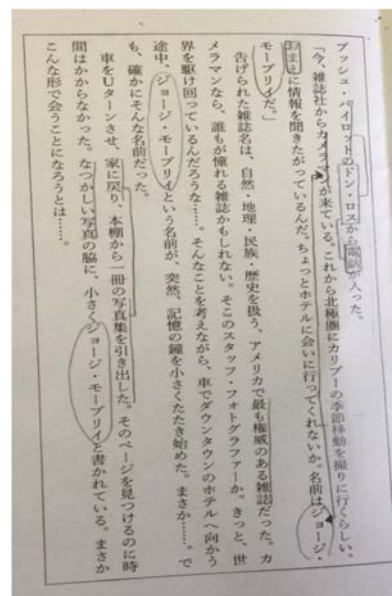 ブッシュ・パイロットのドン・ロスから電話が入った。
「今、雑誌社からカメラマンが来ている。これから北極圏にカリブーの季節移動を撮りに行くらしい。
おまえに情報を聞きたがっているんだ。ちょっとホテルに会いに行ってくれないか。名前はジョージ・
モーブリイだ。」
告げられた雑誌名は、自然・地理・民族・歴史を扱う、アメリカで最も権威のある雑誌だった。カ
メラマンなら、誰もが憧れる雑誌かもしれない。そこのスタッフ・フォトグラファーか。きっと、世
界を駆け回っているんだろうな……。そんなことを考えながら、車でダウンタウンのホテルへ向かう
途中、ジョージ・モーブリイという名前が、突然、記憶の鐘を小さくたたき始めた。まさか……。で
も、確かにそんな名前だった。
車をUターンさせ、家に戻り、本棚から一冊の写真集を引き出した。そのページを見つけるのに時
間はかからなかった。なつかしい写真の脇に、小さくジョージ・モーブリイと書かれている。まさか
こんな形で会うことになろうとは……。